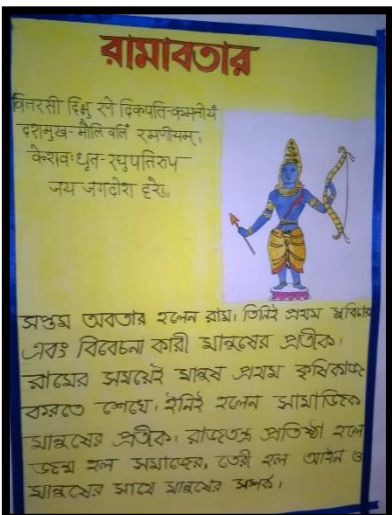 রামাবতার
वितरसी दिक्षु रणे दिकपति-कमनीयं
दशमुख-मौलि बलिं रमणीयम्।
केशव धृत-रघुपतिरुप
जय जगदीश हरे॥
সপ্তম অবতার হলেন রাম। তিনিই প্রথম সুবিচার
এবং বিবেচনা কারী মানুষের প্রতীক।
রামের সময়েই মানুষ প্রথম কৃষিকাজ
করতে শেখে। ইনিই হলেন সামাজিক
মানুষের প্রতীক। রাজতন্ত্র প্রতিষ্ঠা হলে
জন্ম হল সমাজের, তৈরী হল আইন ও
মানুষের সাথে মানুষের সম্পর্ক।